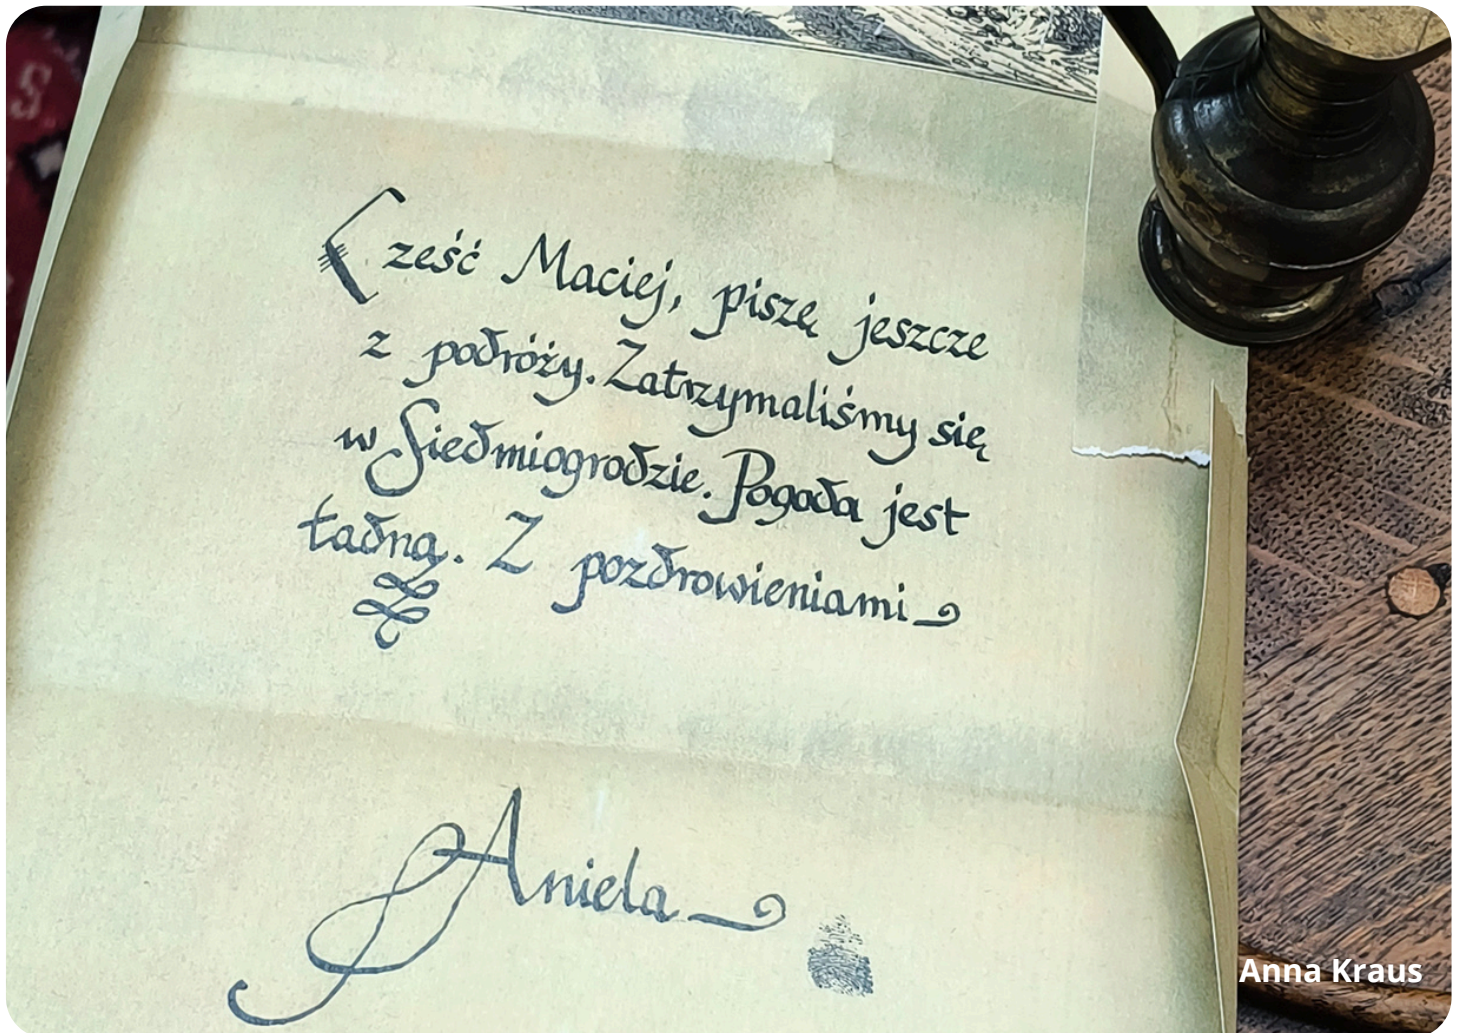 Cześć Maciej, piszę jeszcze
z podróży. Zatrzymaliśmy się
w Siedmiogrodzie. Pogoda jest
ładna. Z pozdrowieniami
Aniela
Anna Kraus